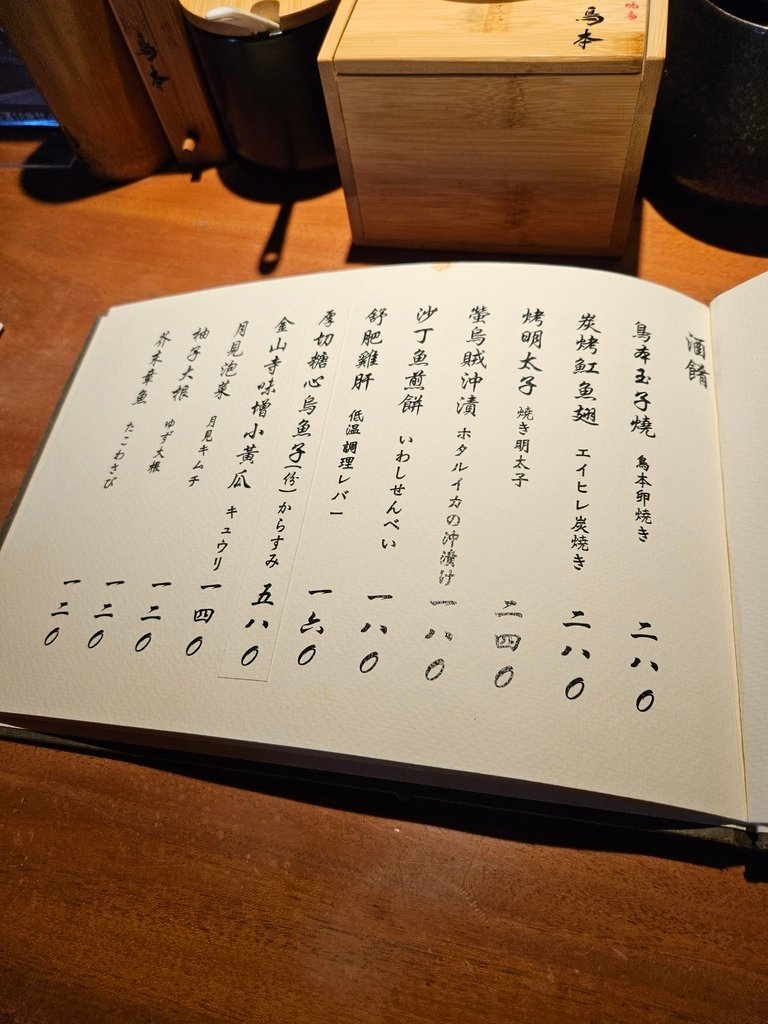 鳥本
鳥本
焼鳥
酒餚
鳥本玉子燒 鳥本卵焼き 二八〇
炭烤魟魚翅 エイヒレ炭焼き 二八〇
烤明太子 焼き明太子 二四〇
螢烏賊沖漬 ホタルイカの沖漬け 一八〇
沙丁魚煎餅 いわしせんべい 一八〇
舒肥雞肝 低温調理レバー 一六〇
厚切糖心烏魚子(份)からすみ 五八〇
金山寺味增小黃瓜 キュウリ 一四〇
月見泡菜 月見キムチ 一二〇
柚子大根 ゆず大根 一二〇
芥末章魚 たこわさび 一二〇